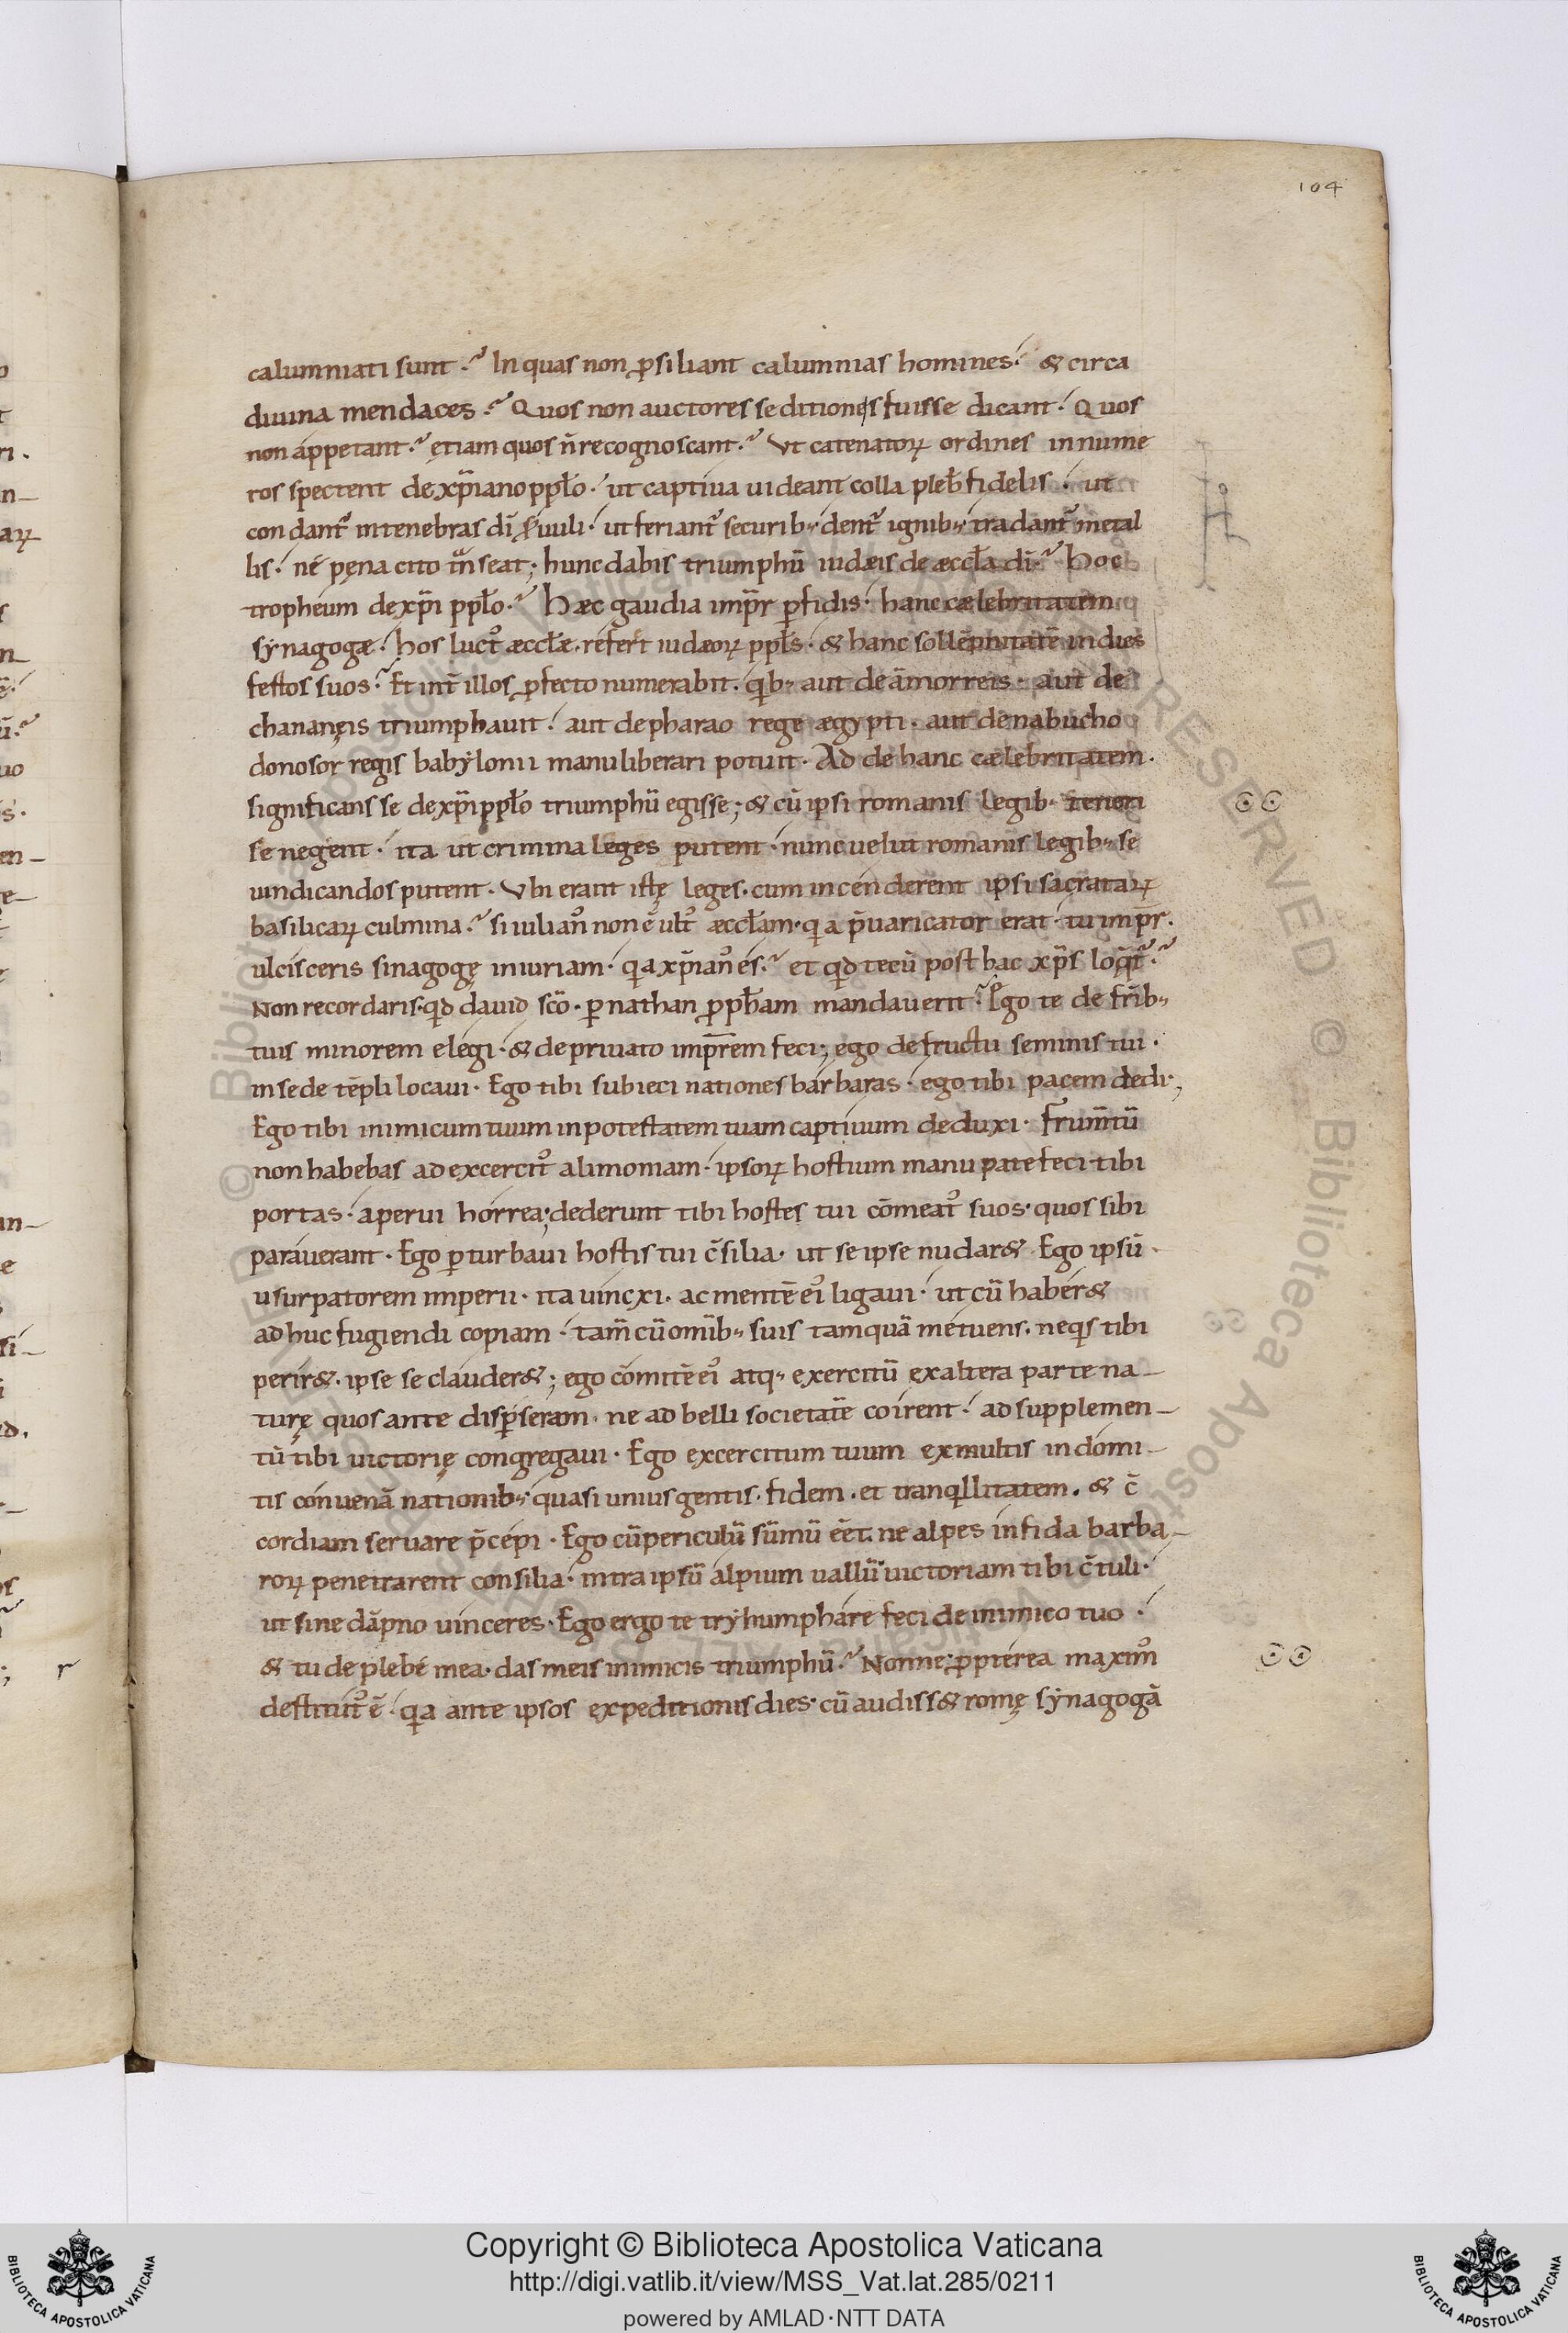 104
calumniati sunt.ˀ In quas non ꝓsiliant calumnias homines. & circa
diuina mendaces.ˀ Quos non auctores seditionis fuisse dicant. Quos
non appetant.ˀ etiam quos n̄ recognoscant.ˀ Vt catenatoꝝ ordines in nume
ros spectent de xp̄iano ppło. ut captiua uideant colla pleb̄ fidelis. ut
condantᷣ in tenebras dī seruuli. ut feriantᷣ securib; dentᷣ ignib; tradantᷣ metal
lis. ne pęna cito t̄nseat; hunc dabis triumphū iudæis de æccła dī.ˀ Hoc
tropheum de xp̄i ppło.ˀ Hæc gaudia imp̄r ꝑfidis. hanc cælebritatem
synagogæ. hos luctꝰ æccłæ. refert iudæoꝝ ppłs. & hanc sollēpnitatē in dies
festos suos.ˀ Et int̄ illos ꝓfecto numerabit. qib; aut de amorreis. aut de
chananęis triumphauit. aut de pharao rege ægypti. aut de nabucho
donosor regis babylonii manu liberari potuit. Adde hanc cælebritatem.
significans se de xp̄i ppło triumphū egisse; & cū ipsi romanis legib; teneri
se negent. ita ut crimina leges putent. nunc uelut romanis legib; se
uindicandos putent. Vbi erant istę leges. cum incenderent ipsi sacrataꝝ
basilicaꝝ culmina.ˀ si iulianꝰ non ē ultꝰ æccłam. qa p̄uaricator erat. tu imp̄r.
ulcisceris sinagogę iniuriam. qa xp̄ianꝰ es.ˀ et qd tecū post hac xp̄s loq̄tᷣ.ˀ
Non recordaris. qd dauid sc̄o. ꝑ nathan ꝓph̄am mandauerit.ˀ Ego te de fr̄ib;
tuis minorem elegi. & de priuato imp̄rem feci; ego de fructu seminis tui.
in sede tēpli locaui. Ego tibi subieci nationes barbaras. ego tibi pacem dedi;
Ego tibi inimicum tuum in potestatem tuam captiuum deduxi. Frum̄tū
non habebas ad excercitꝰ alimoniam. ipsoꝝ hostium manu patefeci tibi
portas. aperui horrea; dederunt tibi hostes tui cōmeatꝰ suos. quos sibi
parauerant. Ego ꝑturbaui hostis tui c̄silia. ut se ipse nudar&. Ego ipsū
usurpatorem imperii. ita uincxi. ac mentē eiꝰ ligaui. ut cū haber&
adhuc fugiendi copiam. tam̄ cū omīb; suis tamquā metuens. neqis tibi
perir&. ipse se clauder&; ego comitē eiꝰ atq; exercitū ex altera parte na-
turę quos ante disp̱seram. ne ad belli societatē coirent. ad supplemen-
tū tibi uictorię congregaui. Ego excercitum tuum ex multis indomi-
tis conuenā nationib; quasi unius gentis. fidem. et tranqllitatem. & c̄
cordiam seruare p̄cepi. Ego cū periculū sūmū eēt. ne alpes infida barba-
roꝝ penetrarent consilia. intra ipsū alpium uallū uictoriam tibi c̄tuli.
ut sine dāpno uinceres. Ego ergo te tryhumphare feci de inimico tuo.
& tu de plebe mea. das meis inimicis triumphū.ˀ Nonne ꝓpterea maximꝰ
destitutꝰ ē. qa ante ipsos expeditionis dies. cū audiss& romę synagogā
Copyright © Biblioteca Apostolica Vaticana
http://digi.vatlib.it/view/MSS_Vat.lat.285/0211
powered by AMLAD·NTT DATA
BIBLIOTECA APOSTOLICA VATICANA
BIBLIOTECA APOSTOLICA VATICANA